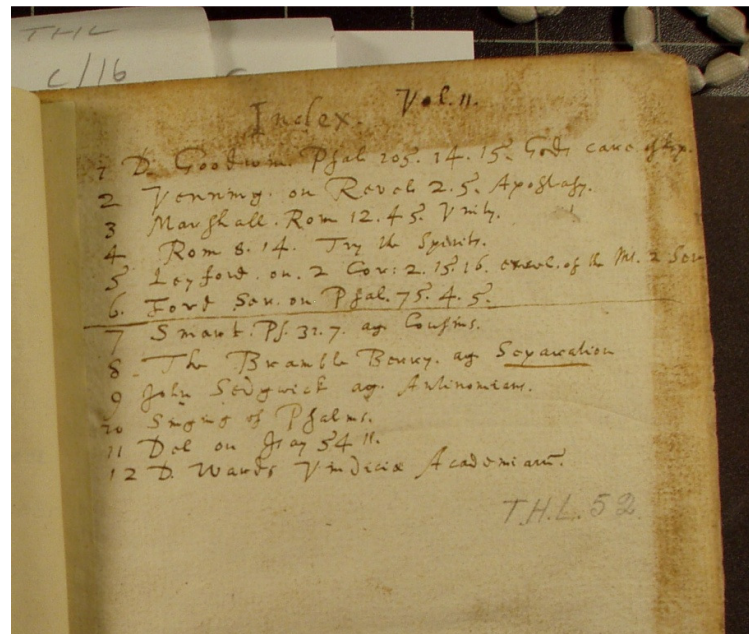 THL
C/16
Index. Vol. 11.
1 D. Goodwin. Psal 105. 14. 15. Gods care of
2 Venning. on Revel 2. 5. Apostasy.
3 Marshall. Rom 12. 4 5. Vnity.
4 Rom 8. 14. Try the Spirits.
5 Leyford. on. 2 Cor: 2. 15. 16. excel. of the Mi. 2 Ser
6. Ford Ser. on Psal. 75. 4. 5.
7 Smart. Ps. 31. 7. ag. Cousins.
8 The Bramble Berry. ag Separation
9 John Sedgwick ag. Antinomians.
10 Singing of Psalms.
11 Del on Isay 54 11.
12 D. Wards Vindiciæ Academiarū.
T.H.L. 52